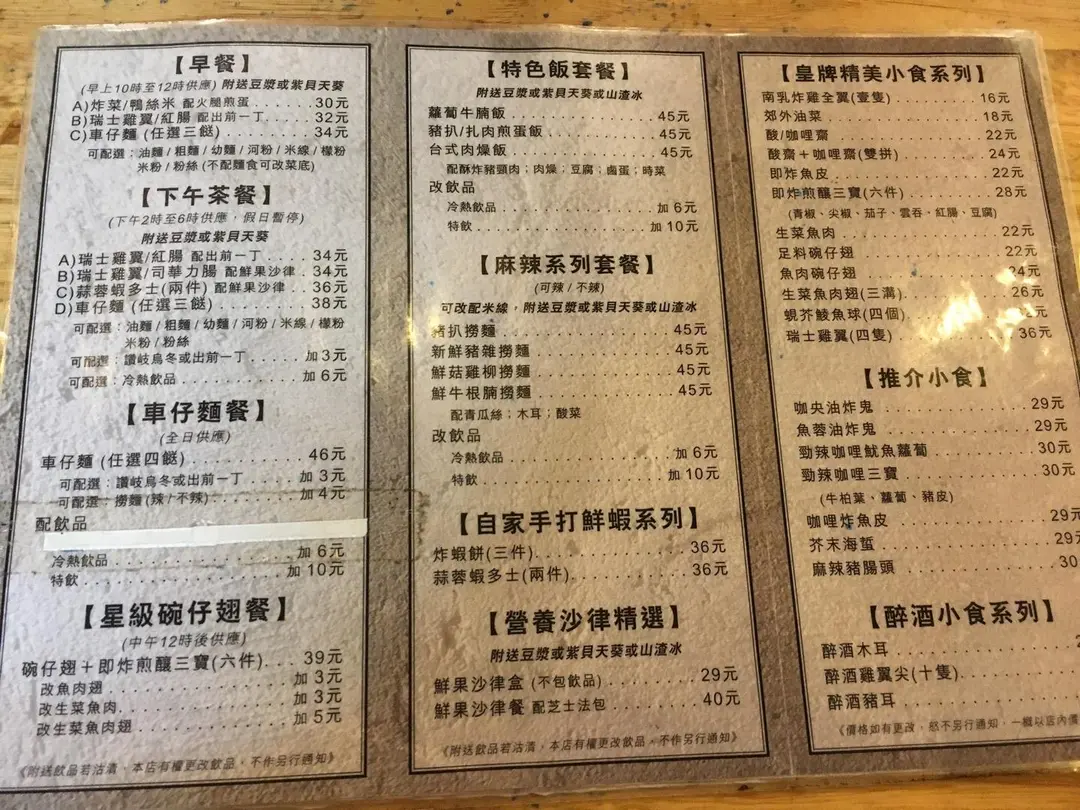 【早餐】
(早上10時至12時供應) 附送豆漿或紫貝天葵
A)炸菜/鴨絲米 配火腿煎蛋 30元
B)瑞士雞翼/紅腸 配出前一丁 32元
C)車仔麵 (任選三餸) 34元
可配選:油麵/粗麵/幼麵/河粉/米線/檬粉
米粉/粉絲 (不配麵食可改菜底)
【下午茶餐】
(下午2時至6時供應,假日暫停)
附送豆漿或紫貝天葵
A)瑞士雞翼/紅腸 配出前一丁 34元
B)瑞士雞翼/司華力腸 配鮮果沙律 34元
C)蒜蓉蝦多士(兩件) 配鮮果沙律 36元
D)車仔麵 (任選三餸) 38元
可配選:油麵/粗麵/幼麵/河粉/米線/檬粉
米粉/粉絲
可配選:讚岐烏冬或出前一丁 加 3元
可配選:冷熱飲品 加 6元
【車仔麵餐】
(全日供應)
車仔麵 (任選四餸) 46元
可配選:讚岐烏冬或出前一丁 加 3元
可配選:撈麵(辣/不辣) 加 4元
配飲品
冷熱飲品 加 6元
特飲 加 10元
【星級碗仔翅餐】
(中午12時後供應)
碗仔翅+即炸煎釀三寶(六件) 39元
改魚肉翅 加 3元
改生菜魚肉 加 3元
改生菜魚肉翅 加 5元
《附送飲品若沽清,本店有權更改飲品,不作另行通知》
【特色飯套餐】
附送豆漿或紫貝天葵或山渣冰
蘿蔔牛腩飯 45元
豬扒/扎肉煎蛋飯 45元
台式肉燥飯 45元
配酥炸豬頸肉;肉燥;豆腐;鹵蛋;時菜
改飲品
冷熱飲品 加 6元
特飲 加 10元
【麻辣系列套餐】
(可辣/不辣)
可改配米線,附送豆漿或紫貝天葵或山渣冰
豬扒撈麵 45元
新鮮豬雜撈麵 45元
鮮菇雞柳撈麵 45元
鮮牛根腩撈麵 45元
配青瓜絲;木耳;酸菜
改飲品
冷熱飲品 加 6元
特飲 加 10元
【自家手打鮮蝦系列】
炸蝦餅(三件) 36元
蒜蓉蝦多士(兩件) 36元
【營養沙律精選】
附送豆漿或紫貝天葵或山渣冰
鮮果沙律盒 (不包飲品) 29元
鮮果沙律餐 配芝士法包 40元
《附送飲品若沽清,本店有權更改飲品,不作另行通知》
【皇牌精美小食系列】
南乳炸雞全翼(壹隻) 16元
郊外油菜 18元
酸/咖哩齋 22元
酸齋+咖哩齋(雙拼) 24元
即炸魚皮 22元
即炸煎釀三寶(六件) 28元
(青椒、尖椒、茄子、雲吞、紅腸、豆腐)
生菜魚肉 22元
足料碗仔翅 22元
魚肉碗仔翅 24元
生菜魚肉翅(三溝) 26元
蜆芥鯪魚球(四個) 元
瑞士雞翼(四隻) 36元
【推介小食】
咖央油炸鬼 29元
魚蓉油炸鬼 29元
勁辣咖哩魷魚蘿蔔 30元
勁辣咖哩三寶 30元
(牛柏葉、蘿蔔、豬皮)
咖哩炸魚皮 29元
芥末海蜇 29元
麻辣豬腸頭 30
【醉酒小食系列】
醉酒木耳
醉酒雞翼尖(十隻)
醉酒豬耳
《價格如有更改,恕不另行通知,一概以店內價